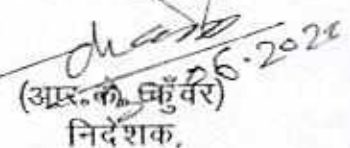 06.2021
(आर॰के॰ कुँवर)
निदेशक,